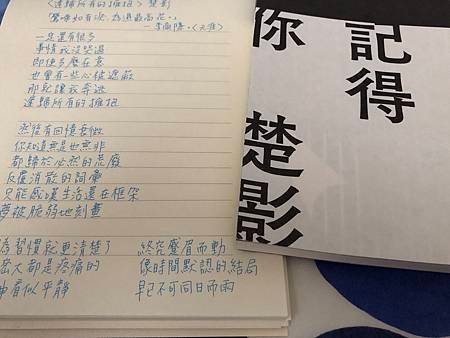 〈逢歸所有的擁抱〉楚影
鶯啼如有淚,為濕最高花。
—李商隱·〈天涯〉
一定還有很多
事情我沒躲過
即使多麼在意
也會有一些心被遮蔽
那就讓我奔逃
逢歸所有的擁抱
然後有回憶去做
你知道無是也無非
都歸於必然的荒廢
反覆消散的詞彙
只能感嘆生活還在框架
夢被脆弱地刻畫
為習慣就更清楚了
人都是疼痛的
看似平靜
終究蹙眉而動
像時間默認的結局
早已不可同日而雨
記得
你
楚影